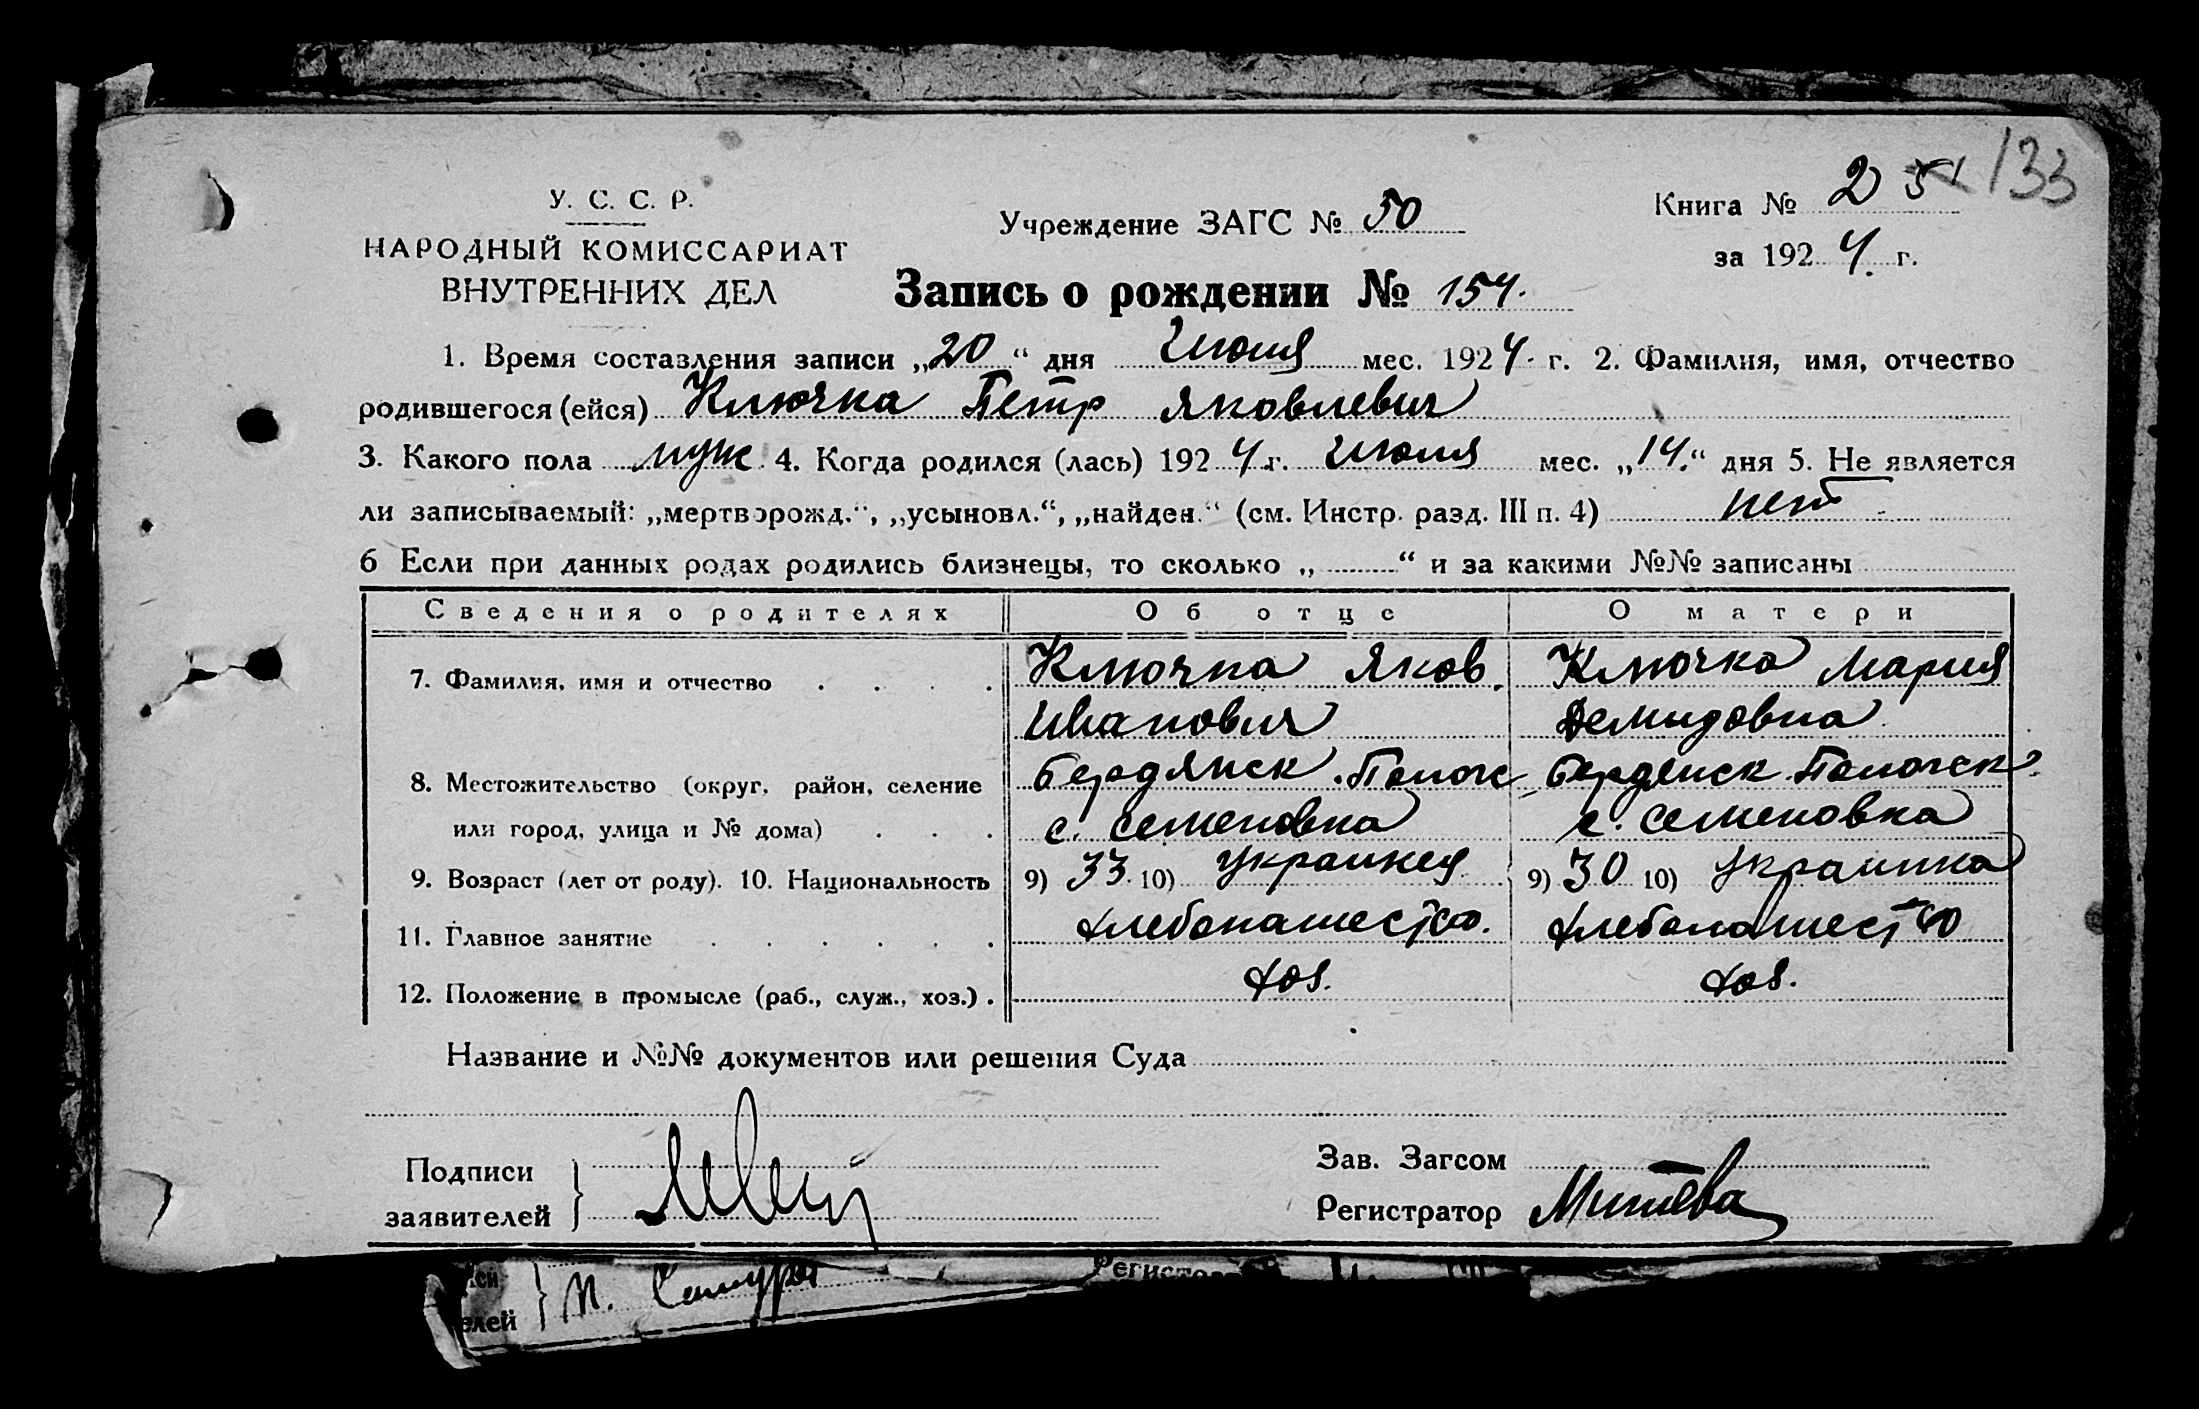 133
У. С. С. Р.
НАРОДНЫЙ КОМИССАРИАТ
ВНУТРЕННИХ ДЕЛ
Учреждение ЗАГС № 50
Книга № 2
за 1924 г.
Запись о рождении № 154.
1. Время составления записи „20“ дня Июля мес. 1924. г. 2. Фамилия, имя, отчество
родившегося (ейся) Ключка Петр Яковлевич
3. Какого пола муж 4. Когда родился (лась) 1924 г. Июля мес. „14.“ дня 5. Не является
ли записываемый: „мертворожд.“, „усыновл.“, „найден.“ (см. Инстр. разд. III п. 4) нет
6 Если при данных родах родились близнецы, то сколько „ “ и за какими №№ записаны
Сведения о родителях Об отце О матери
7. Фамилия, имя и отчество Ключка Яков Ключка Мария
Иванович Демидовна
8. Местожительство (округ, район, селение Бердянск. Полог Бердянск Пологск.
или город, улица и № дома) с. Семеновка с. Семеновка
9. Возраст (лет от роду). 10. Национальность 9) 33 10) Украинец 9) 30 10) Украинка
11. Главное занятие хлебопашество. хлебопашество
12. Положение в промысле (раб., служ., хоз.) хоз. хоз.
Название и №№ документов или решения Суда
Подписи
заявителей
Зав. Загсом
Регистратор